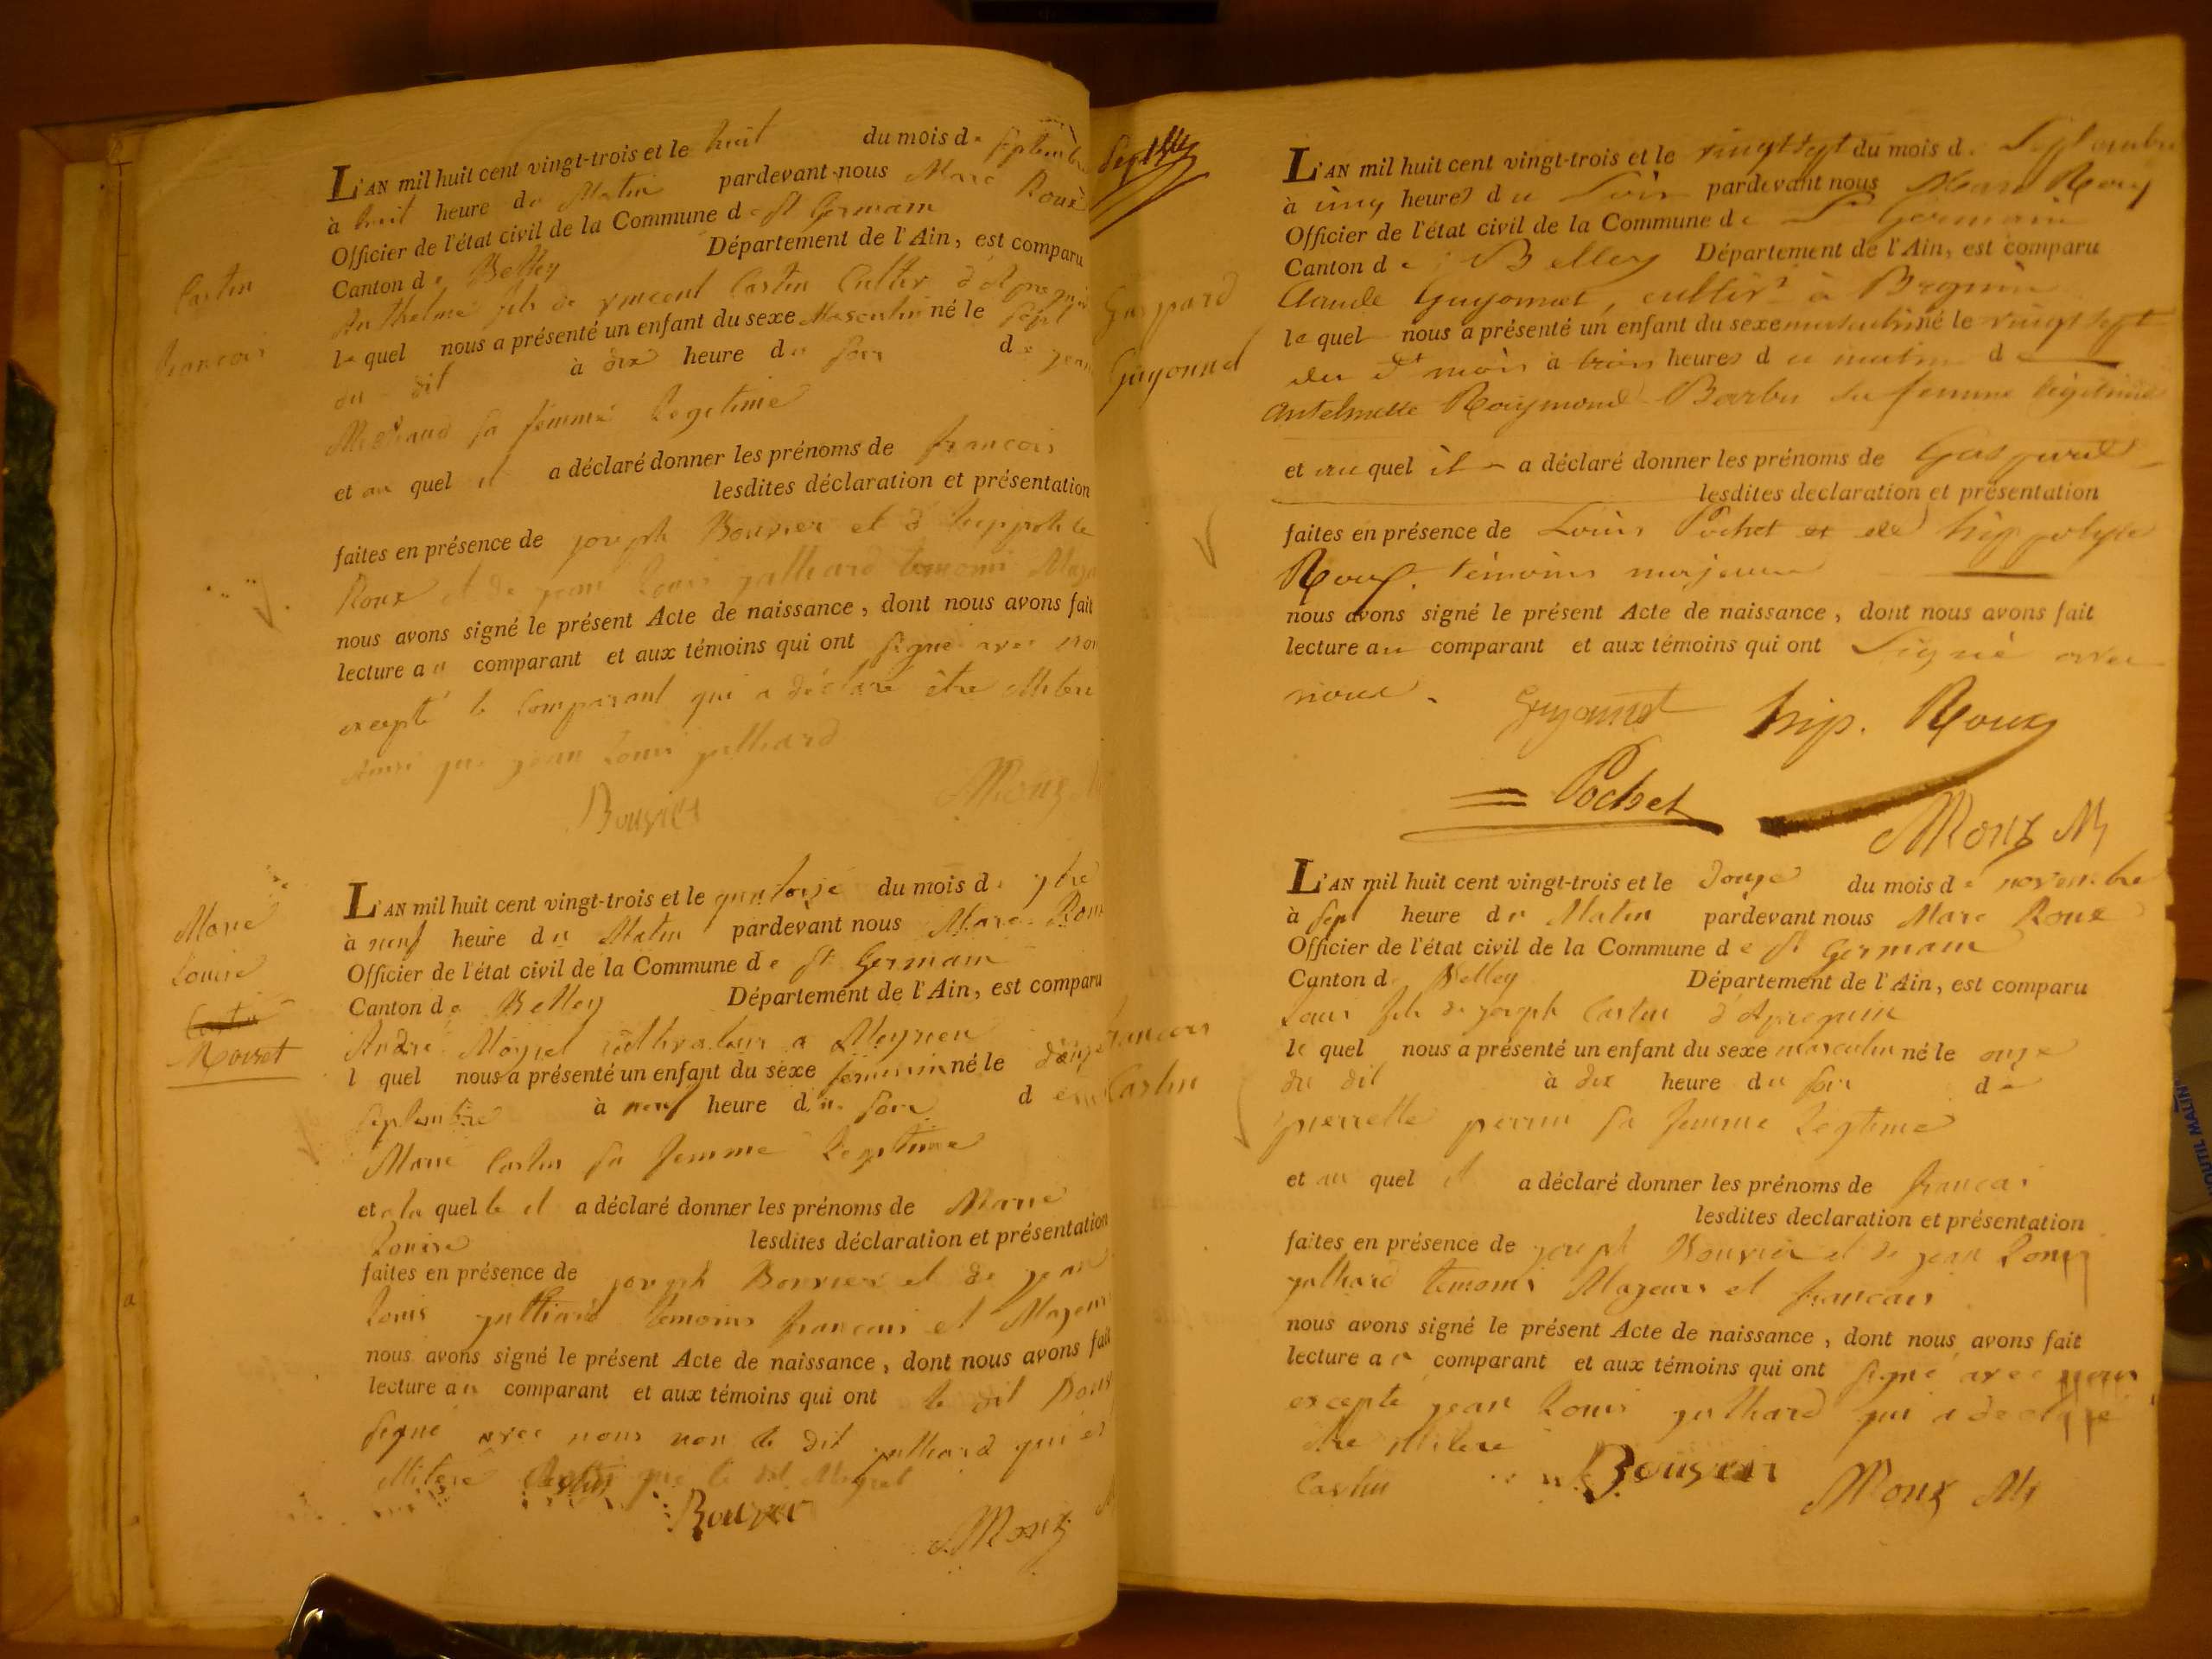 Castin
françois
L'AN mil huit cent vingt-trois et le huit du mois de septembre
à huit heure du Matin pardevant nous Marc Roux
Officier de l'état civil de la Commune de St Germain
Canton de Belley Département de l'Ain, est comparu
Anthelme fils de vincent Castin d'apregnin
le quel nous a présenté un enfant du sexe Masculin né le sept
du dit à dix heure du soir de jean
sa femme legetime
et au quel il a déclaré donner les prénoms de françois
lesdites déclaration et présentation
faites en présence de joseph Bouvier et d'hippolite
Roux et de jean louis julliard temoins
nous avons signé le présent Acte de naissance, dont nous avons fait
lecture au comparant et aux témoins qui ont signé avec nou
excepté le comparant qui a déclaré être
ainsi que jean louis julliard
Bouvier MRoux
Marie
Louise
Castin
Moiret
L'AN mil huit cent vingt-trois et le quatorze du mois de 7bre
à neuf heure du Matin pardevant nous Marc Roux
Officier de l'état civil de la Commune de St Germain
Canton de Belley Département de l'Ain, est comparu
André cultivateur a Meyrieu
l quel nous a présenté un enfant du sexe feminin né le douze
septembre à neuf heure du soir de
Marie Castin sa femme legetime
et a la quelle il a déclaré donner les prénoms de Marie
Louise lesdites déclaration et présentation
faites en présence de joseph Bouvier et de jean
louis julliard temoins francais et Majeurs
nous avons signé le présent Acte de naissance, dont nous avons fait
lecture au comparant et aux témoins qui ont le dit
signé avec nous non le dit julliard qui et
que le dit
Bouvier
MRoux
Gaspard
Guyonnet
L'AN mil huit cent vingt-trois et le vingt sept du mois de Septembre
à cinq heures du Soir pardevant nous Marc Roux
Officier de l'état civil de la Commune de St Germain
Canton de Belley Département de l'Ain, est comparu
Claude Guyonnet, cultivr à Bregnin
le quel nous a présenté un enfant du sexe masculin né le vingt sept
du dt mois à trois heures du matin de
Antelmette Roymond Barbu sa femme légitime
et au quel il a déclaré donner les prénoms de Gaspard
lesdites declaration et présentation
faites en présence de Louis Pochet et de hippolyte
Roux. témoins majeurs
nous avons signé le présent Acte de naissance, dont nous avons fait
lecture au comparant et aux témoins qui ont Signé avec
nous.
Guyonnet hip. Roux
Pochet
MRoux
francois
Castin
L'AN mil huit cent vingt-trois et le douze du mois de novembre
à sept heure du Matin pardevant nous Marc Roux
Officier de l'état civil de la Commune de St Germain
Canton de Belley Département de l'Ain, est comparu
Louis fils de joseph Castin d'Apregnin
le quel nous a présenté un enfant du sexe masculin né le onze
du dit à dix heure du soir de
pierrette perrin sa femme legetime
et au quel il a déclaré donner les prénoms de francai
lesdites declaration et présentation
faites en présence de joseph Bouvier et de jean Louis
julliard temoins Majeurs et francais
nous avons signé le présent Acte de naissance, dont nous avons fait
lecture au comparant et aux témoins qui ont signé avec nous
excepté jean Louis julliard qui a declaré
être
Castin Bouvier MRoux